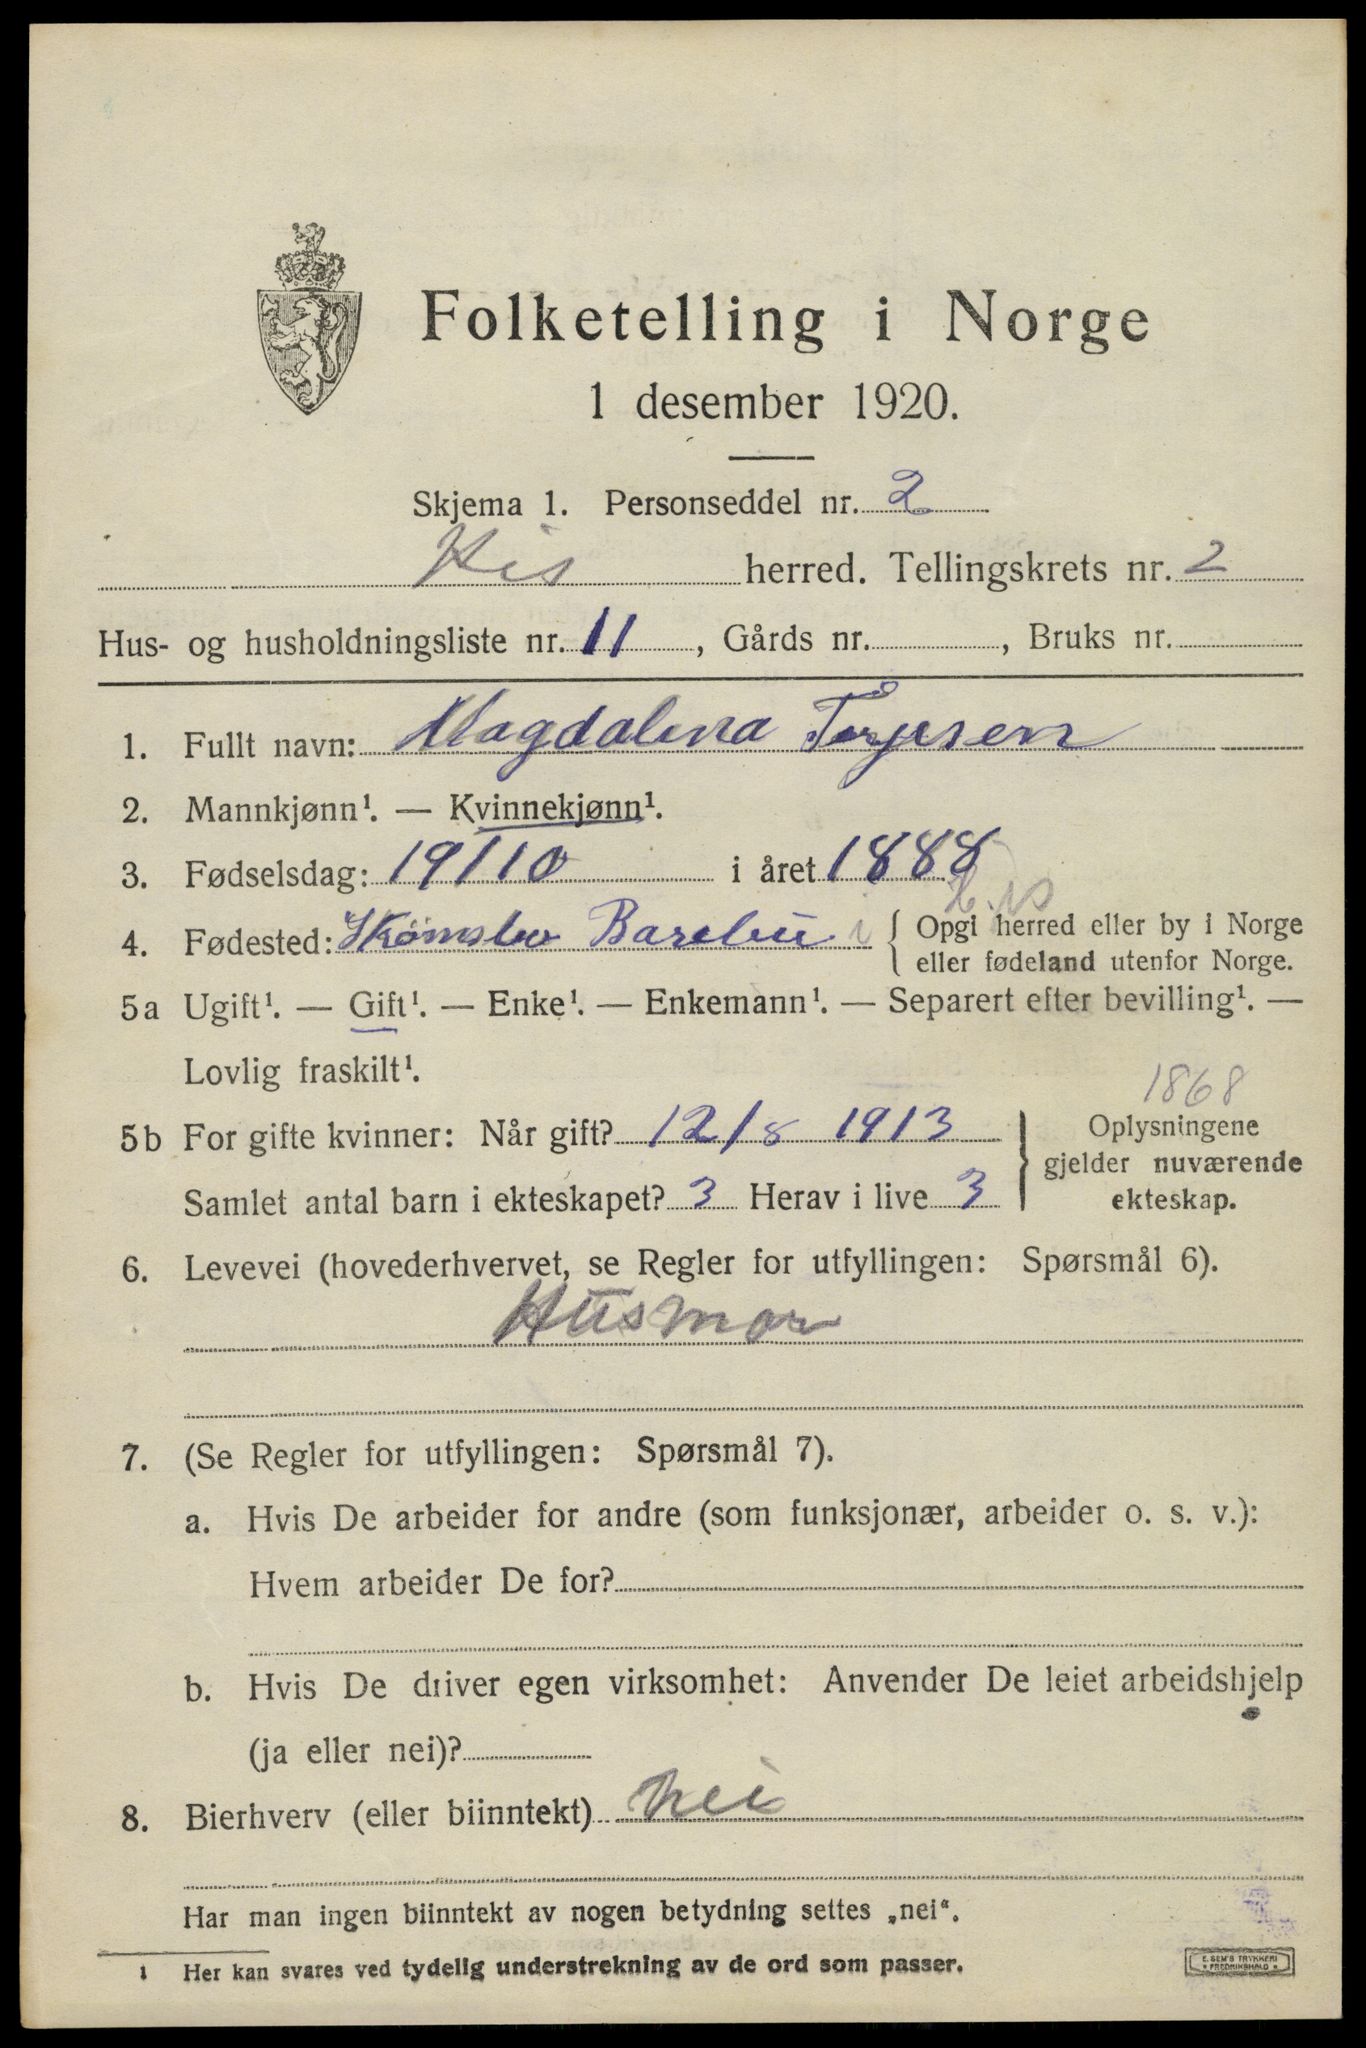 Folketelling i Norge
1 desember 1920.
Skjema 1. Personseddel nr. 2
His herred. Tellingskrets nr. 2
Hus- og husholdningsliste nr. 11, Gårds nr. , Bruks nr.
1. Fullt navn: Magdalena Terjesen
2. Mannkjønn¹. — Kvinnekjønn¹.
3. Fødselsdag: 19/10 i året 1888
4. Fødested: i His { Opgi herred eller by i Norge
eller fødeland utenfor Norge.
5a Ugift¹. — Gift¹. — Enke¹. — Enkemann¹. — Separert efter bevilling¹. —
Lovlig fraskilt¹.
1868
5b For gifte kvinner: Når gift? 12/8 1913 } Oplysningene
gjelder nuværende
Samlet antal barn i ekteskapet? 3 Herav i live 3 ekteskap.
6. Levevei (hovederhvervet, se Regler for utfyllingen: Spørsmål 6).
Husmor
7. (Se Regler for utfyllingen: Spørsmål 7).
a. Hvis De arbeider for andre (som funksjonær, arbeider o. s. v.):
Hvem arbeider De for?
b. Hvis De driver egen virksomhet: Anvender De leiet arbeidshjelp
(ja eller nei)?
8. Bierhverv (eller biinntekt) nei
Har man ingen biinntekt av nogen betydning settes „nei“.
1 Her kan svares ved tydelig understrekning av de ord som passer.
E. SEM'S TRYKKERI
FREDRIKSHALD